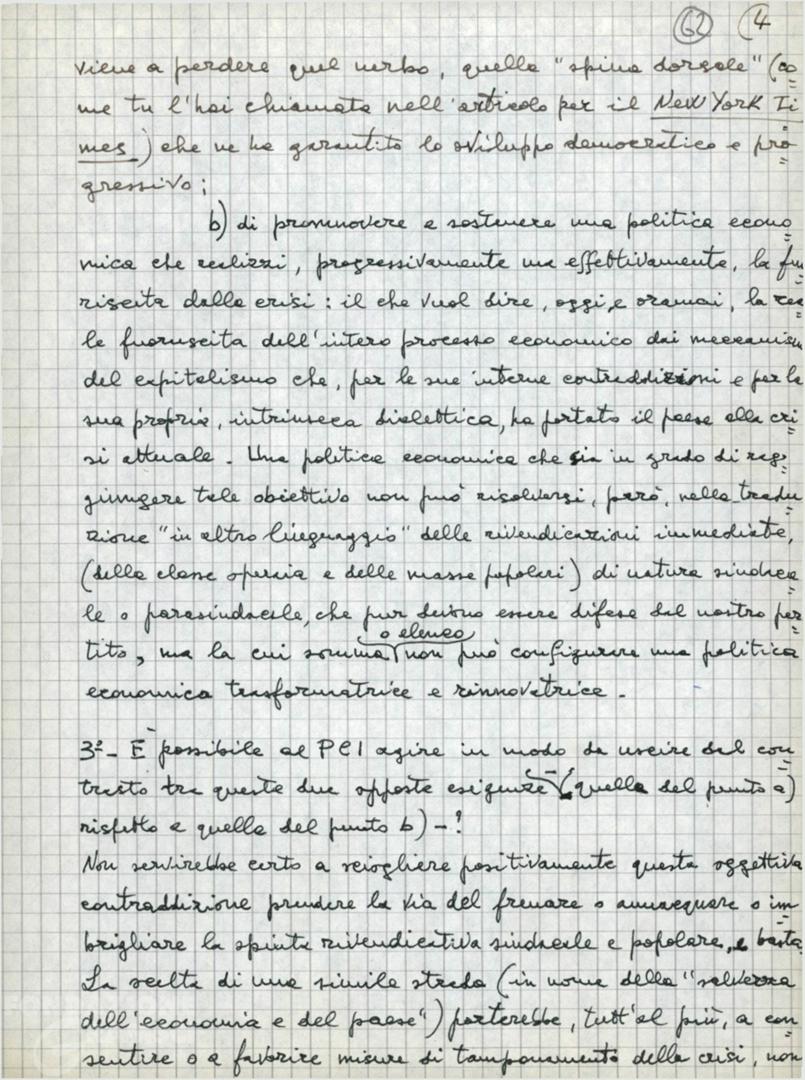 62 (4
viene a perdere quel nerbo, quella "spina dorsale" (co=
me tu l'hai chiamata nell'articolo per il New York Ti=
mes) che ne ha garantito lo sviluppo democratico e pro=
gressivo;
b) di promuovere e sostenere una politica econo=
mica che realizzi, progressivamente ma effettivamente, la fu=
riscita dalla crisi: il che vuol dire, oggi, e oramai, la rea=
le fuoruscita dell'intero processo economico dai meccanismi
del capitalismo che, per le sue interne contraddizioni e per la
sua propria, intrinseca dialettica, ha portato il paese alla cri=
si attuale. Una politica economica che sia in grado di rag=
giungere tale obiettivo non può risolversi, però, nella tradu
zione "in altro linguaggio" delle rivendicazioni immediate,
(della classe operaia e delle masse popolari) di natura sindaca
le o parasindacale, che pur devono essere difese dal nostro par=
o elenco
tito, ma la cui somma non può configurare una politica
economica trasformatrice e rinnovatrice.
3º- È possibile al PCI agire in modo da uscire dal con=
trasto tra queste due opposte esigenze - (quella del punto a)
rispetto a quella del punto b) - ?
Non servirebbe certo a sciogliere positivamente questa oggettiva
contraddizione prendere la via del frenare o annacquare o im=
brigliare la spinta rivendicativa sindacale e popolare, e basta.
La scelta di una simile strada (in nome della "salvezza
dell'economia e del paese") porterebbe, tutt'al più, a con=
sentire o a favorire misure di tamponamento della crisi, non